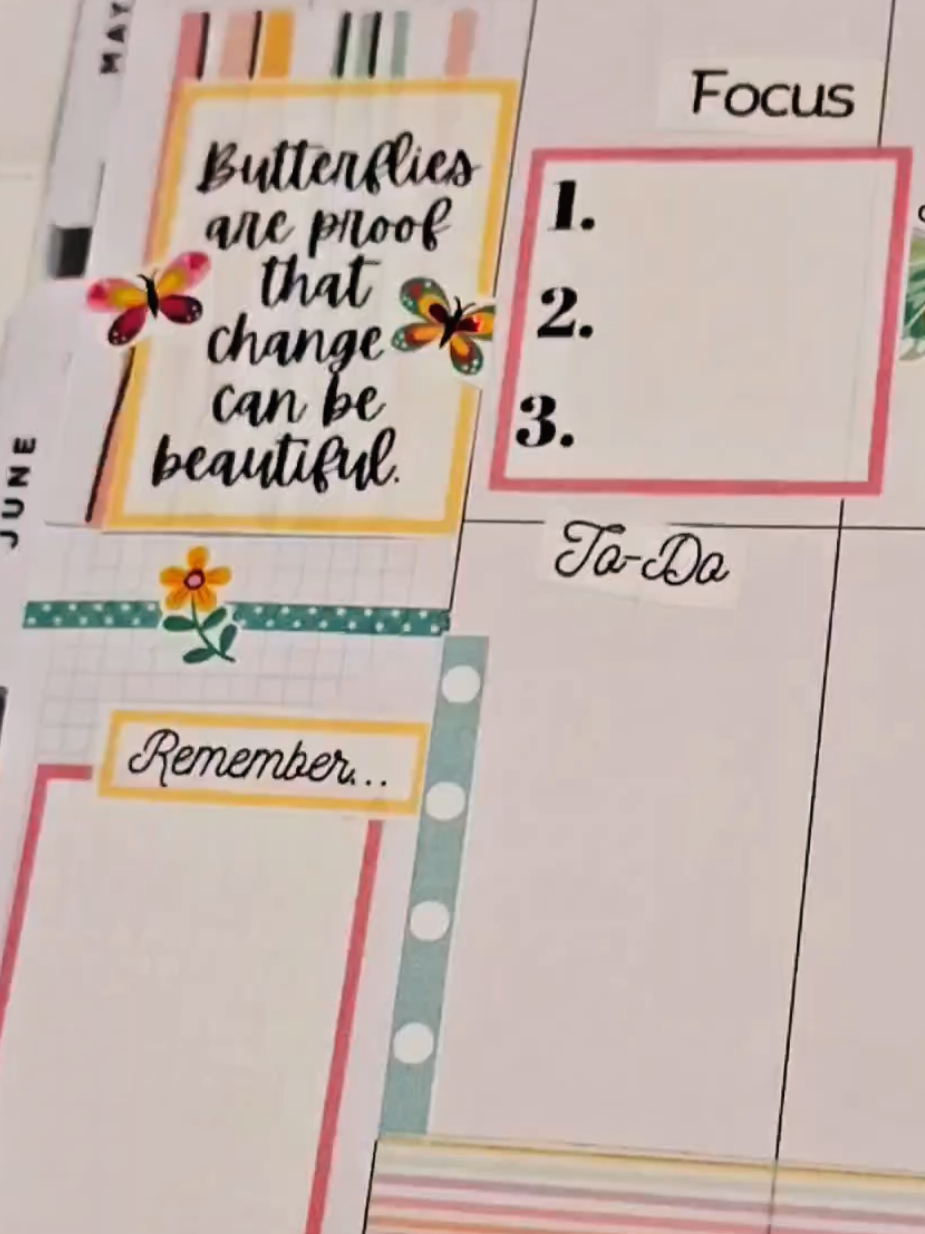 MAY
Butterflies
are proof
that
change
can be
beautiful.
Focus
1.
2.
3.
JUNE
To-Do
Remember...